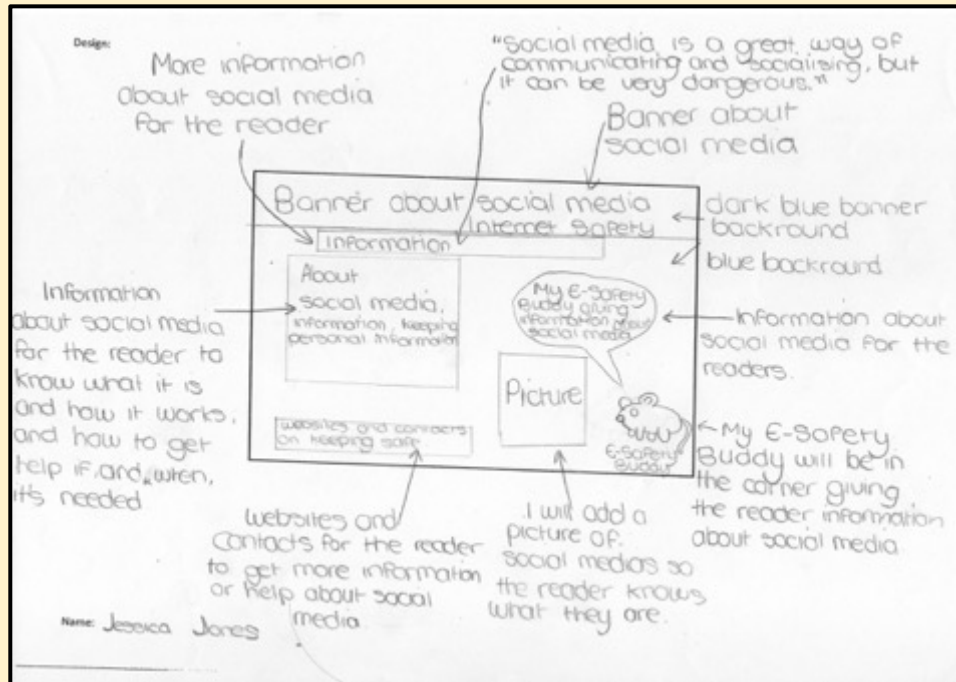 Design:
More information
about social media
for the reader
"Social media is a great way of
communicating and socialising, but
it can be very dangerous."
Banner about
social media
Banner about social media
Internet Safety
dark blue banner
backround
blue backround
Information
About
social media,
information, keeping
personal information
My E-Safety
Buddy giving
information about
social media
Information about
social media for the
readers.
Information
about social media
for the reader to
know what it is
and how it works,
and how to get
help if, and, when,
it's needed
Picture
E-Safety
Buddy
websites and contacts
on keeping safe
My E-Safety
Buddy will be in
the corner giving
the reader information
about social media
Websites and
Contacts for the reader
to get more information
or help about social
media
I will add a
picture of
social medias so
the reader knows
what they are.
Name: Jessica Jones